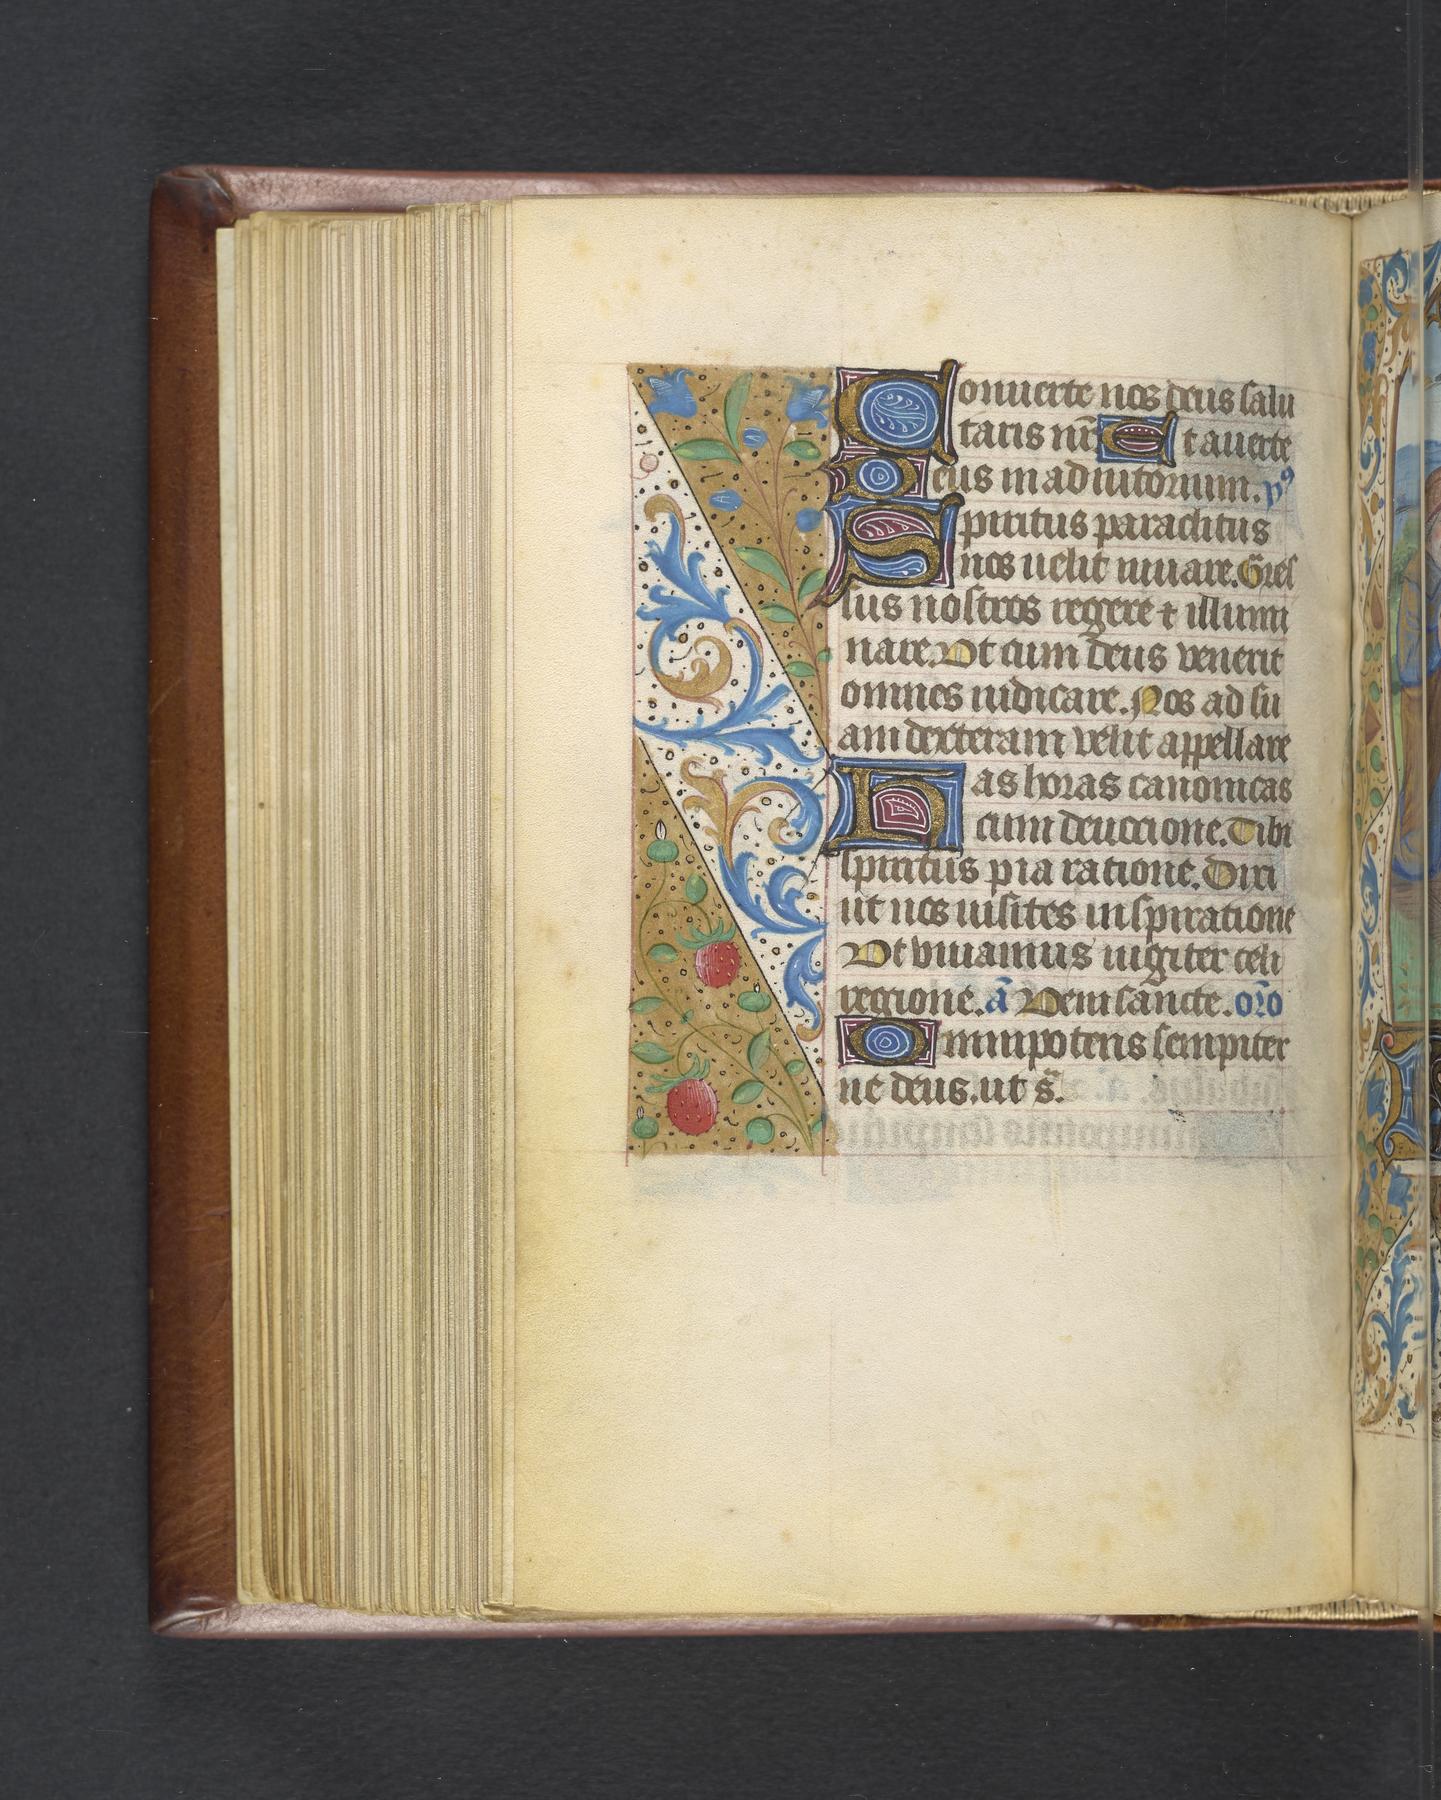 Conuerte nos deus salu
taris nr̄ Et auerte
Deus in adiutorium. ps
Spiritus paraclitus
nos uelit iuuare. Gres
sus nostros regere ⁊ illumi
nare. Vt cum deus venerit
omnes iudicare. Nos ad su
am dexteram velit appellare
Has horas canonicas
cum deuocione. Tibi
spiritus pia ratione. Dixi
ut nos uisites inspiratione
Vt viuamus iugiter celi
regione. a᷒ Veni sancte. or̄o
Omnipotens sempiter
ne deus. ut s̄.